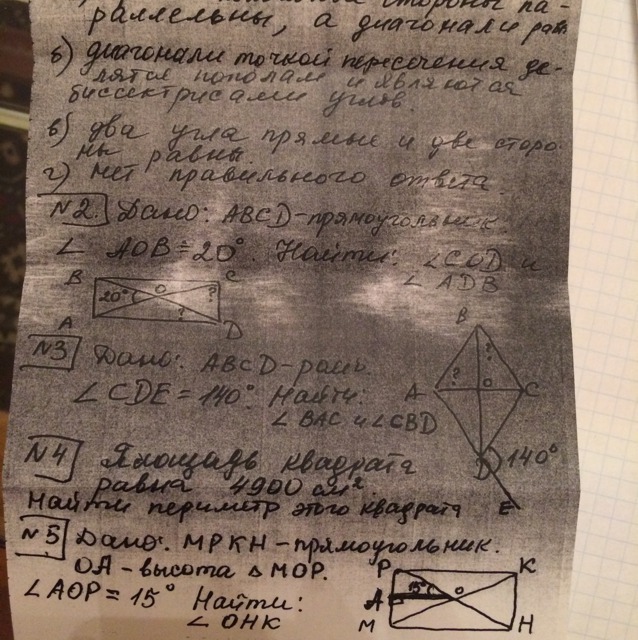 стороны па-
раллельны, а диагонали
б) диагонали точкой пересечения де-
лятся пополам и являются
биссектрисами углов.
в) два угла прямые и две сторо
ны равны.
г) нет правильного ответа.
N2. Дано: ABCD-прямоугольник.
∠ AOB = 20°. Найти: ∠COD и
∠ ADB
B C
20° O ?
?
A D
N3 Дано: ABCD-ромб.
∠CDE = 140° Найти:
∠BAC и ∠CBD
B
?
A ? O C
D 140°
E
N4 Площадь квадрата
равна 4900 см²
Найти периметр этого квадрата
N5 Дано: МРКН-прямоугольник.
ОА-высота △ МОР.
∠АОР = 15° Найти:
∠ОНК
P K
A 15° O
M H